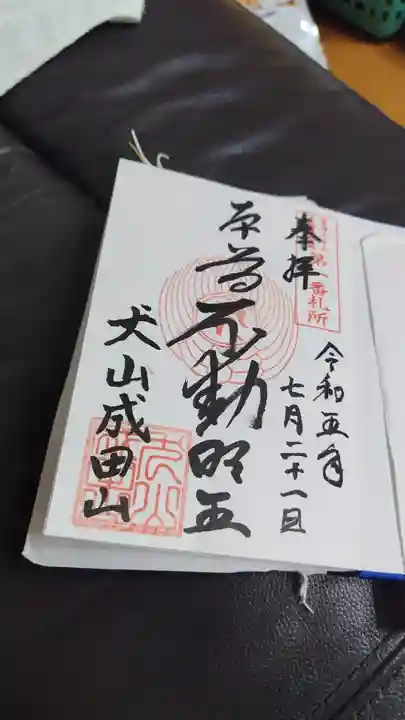 第一番札所
奉拝
令和五年
七月二十一日
本尊不動明王
犬山成田山